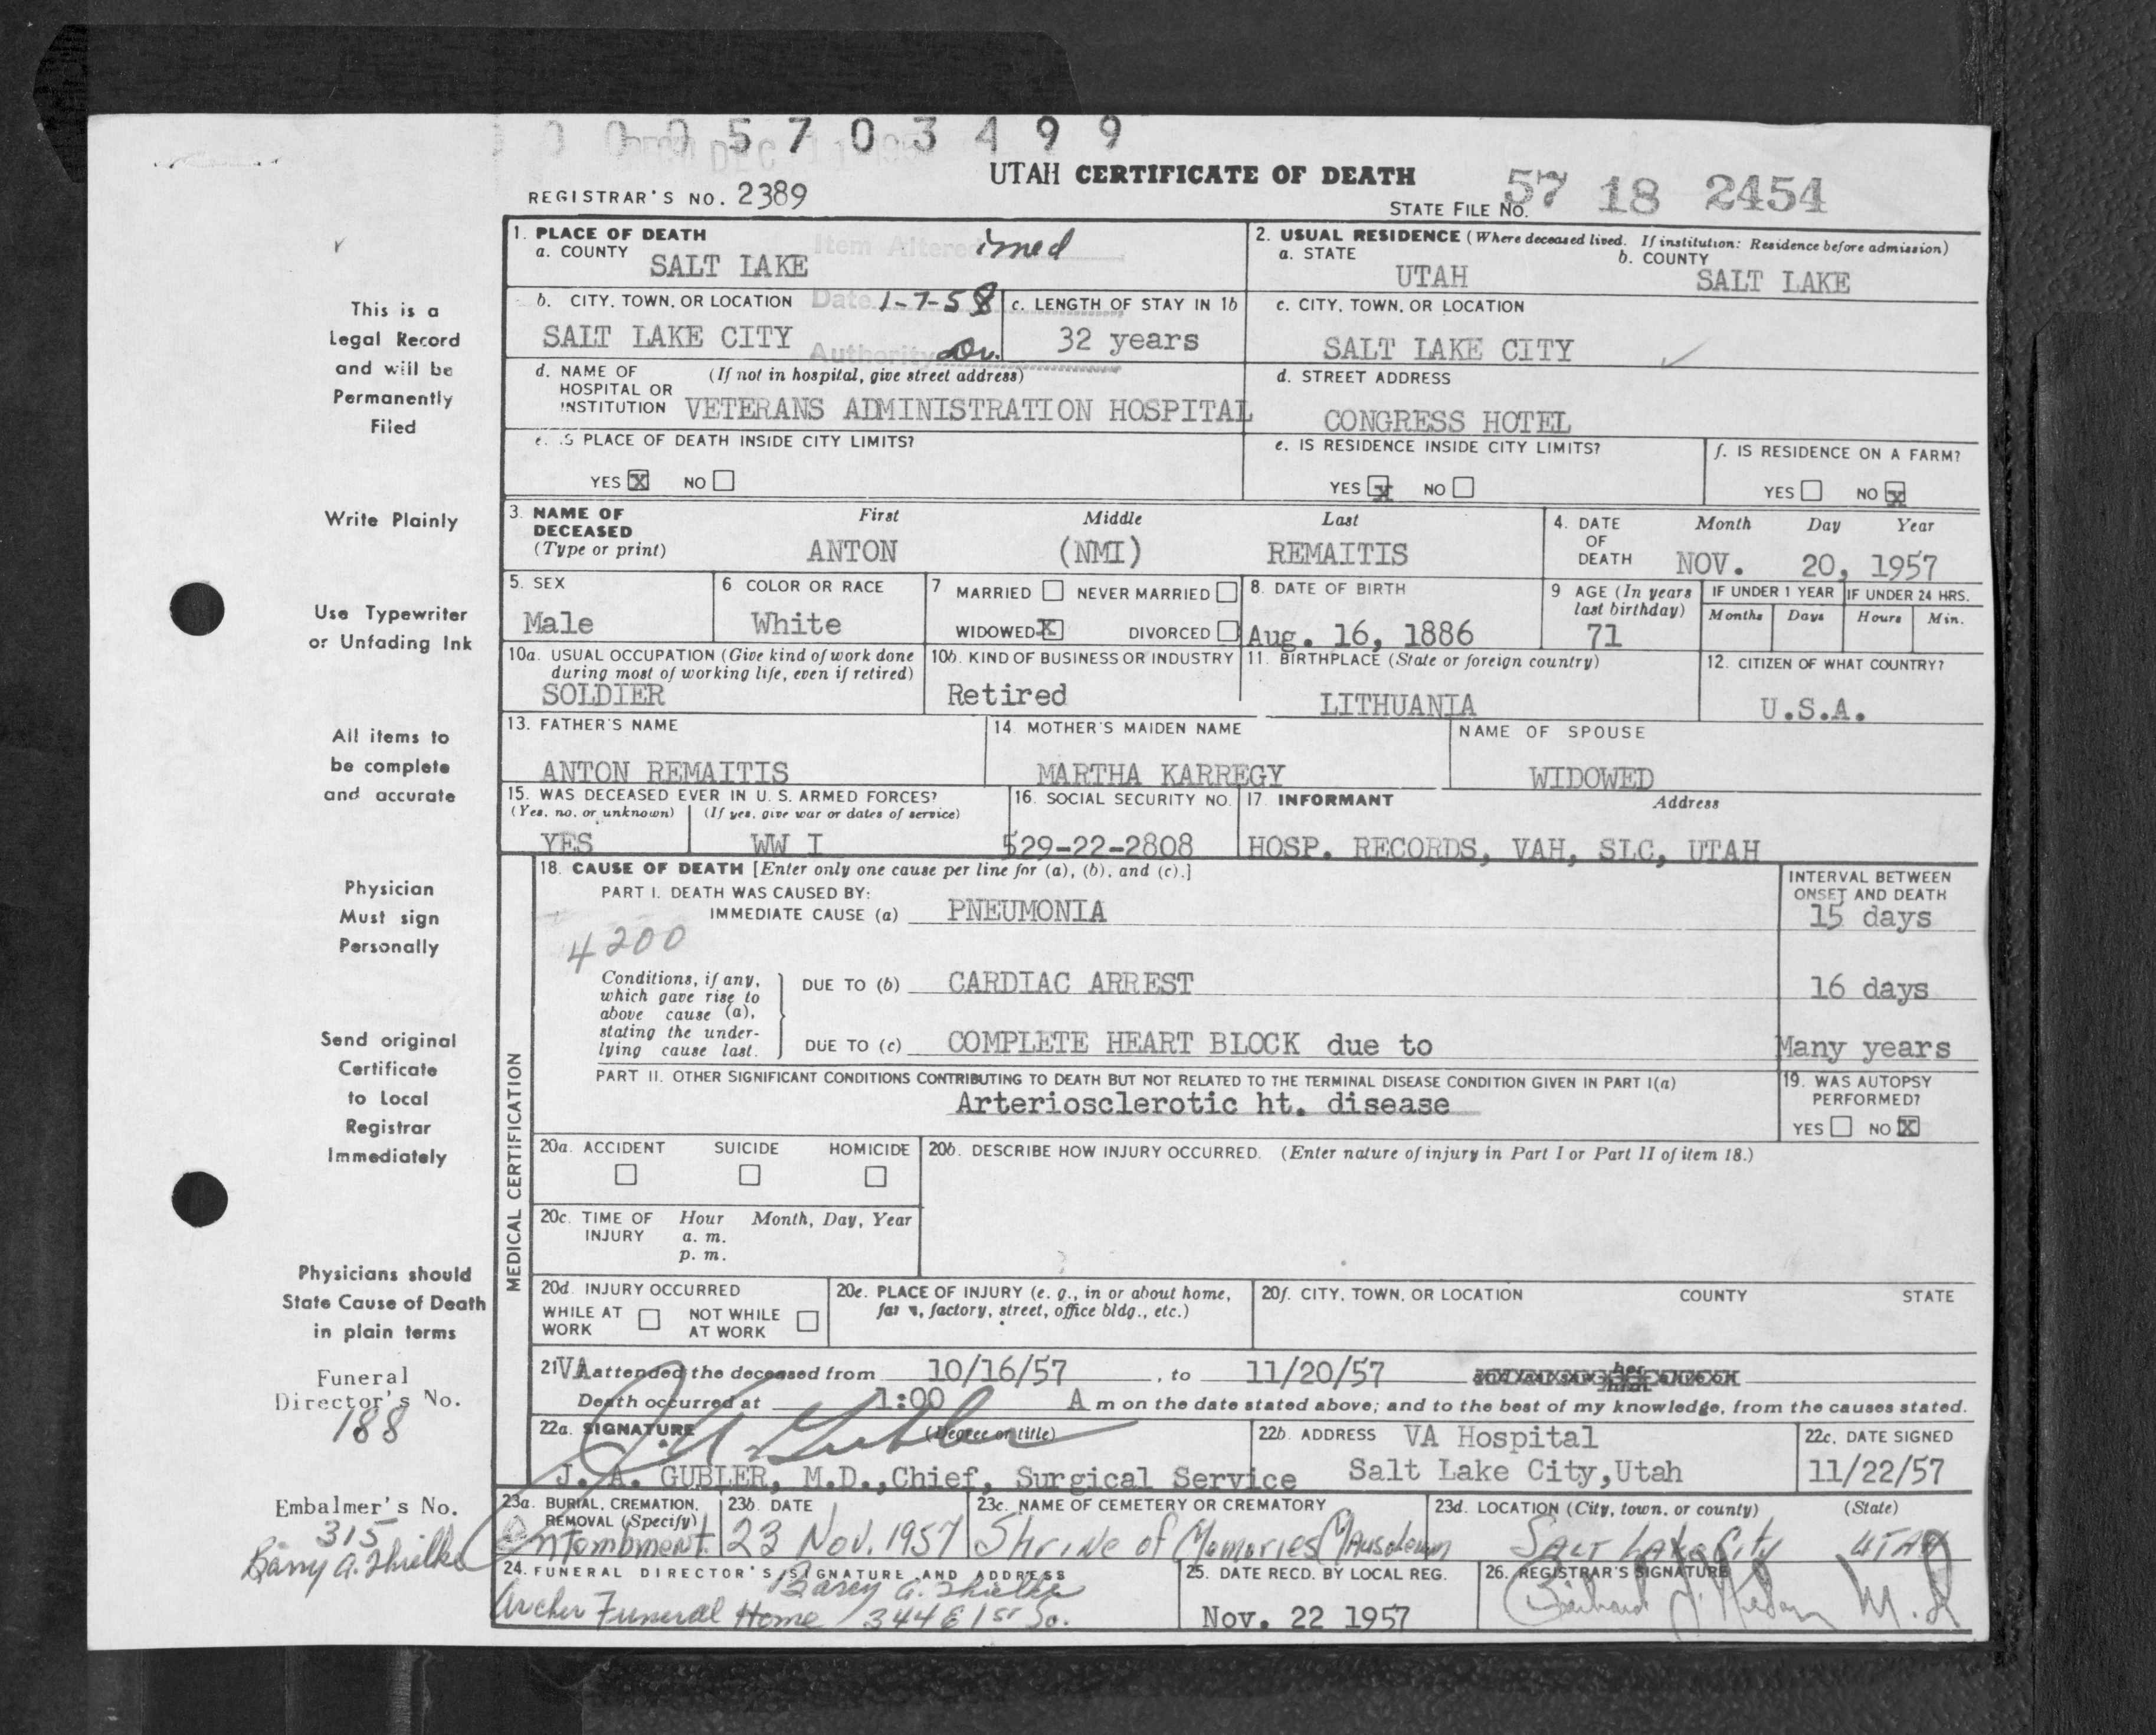 0005703499
UTAH CERTIFICATE OF DEATH
REGISTRAR'S NO. 2389
STATE FILE NO. 57 18 2454
This is a
Legal Record
and will be
Permanently
Filed
Write Plainly
Use Typewriter
or Unfading Ink
All items to
be complete
and accurate
Physician
Must sign
Personally
Send original
Certificate
to Local
Registrar
Immediately
Physicians should
State Cause of Death
in plain terms
Funeral
Director's No.
188
Embalmer's No.
315
1. PLACE OF DEATH
a. COUNTY
SALT LAKE
Item Altered
Date 1-7-58
Authority
2. USUAL RESIDENCE (Where deceased lived. If institution: Residence before admission)
a. STATE
UTAH
b. COUNTY
SALT LAKE
b. CITY, TOWN, OR LOCATION
SALT LAKE CITY
c. LENGTH OF STAY IN 1b
32 years
c. CITY, TOWN, OR LOCATION
SALT LAKE CITY
d. NAME OF (If not in hospital, give street address)
HOSPITAL OR
INSTITUTION VETERANS ADMINISTRATION HOSPITAL
d. STREET ADDRESS
CONGRESS HOTEL
e. IS PLACE OF DEATH INSIDE CITY LIMITS?
YES X NO
e. IS RESIDENCE INSIDE CITY LIMITS?
YES X NO
f. IS RESIDENCE ON A FARM?
YES NO X
3. NAME OF DECEASED
(Type or print)
First Middle Last
ANTON (NMI) REMAITIS
4. DATE OF DEATH
Month Day Year
NOV. 20, 1957
5. SEX
Male
6 COLOR OR RACE
White
7 MARRIED NEVER MARRIED
WIDOWED X DIVORCED
8. DATE OF BIRTH
Aug. 16, 1886
9 AGE (In years last birthday)
71
IF UNDER 1 YEAR
Months Days
IF UNDER 24 HRS.
Hours Min.
10a. USUAL OCCUPATION (Give kind of work done
during most of working life, even if retired)
SOLDIER
10b. KIND OF BUSINESS OR INDUSTRY
Retired
11. BIRTHPLACE (State or foreign country)
LITHUANIA
12. CITIZEN OF WHAT COUNTRY?
U.S.A.
13. FATHER'S NAME
ANTON REMAITIS
14 MOTHER'S MAIDEN NAME
MARTHA KARREGY
NAME OF SPOUSE
WIDOWED
15. WAS DECEASED EVER IN U. S. ARMED FORCES?
(Yes, no, or unknown) (If yes, give war or dates of service)
YES WW I
16. SOCIAL SECURITY NO.
529-22-2808
17. INFORMANT Address
HOSP. RECORDS, VAH, SLC, UTAH
MEDICAL CERTIFICATION
18. CAUSE OF DEATH [Enter only one cause per line for (a), (b), and (c).]
PART I. DEATH WAS CAUSED BY:
IMMEDIATE CAUSE (a) PNEUMONIA
INTERVAL BETWEEN
ONSET AND DEATH
15 days
4200
Conditions, if any,
which gave rise to
above cause (a),
stating the under-
lying cause last.
DUE TO (b) CARDIAC ARREST
16 days
DUE TO (c) COMPLETE HEART BLOCK due to
Many years
PART II. OTHER SIGNIFICANT CONDITIONS CONTRIBUTING TO DEATH BUT NOT RELATED TO THE TERMINAL DISEASE CONDITION GIVEN IN PART I(a)
Arteriosclerotic ht. disease
19. WAS AUTOPSY
PERFORMED?
YES NO X
20a. ACCIDENT SUICIDE HOMICIDE
20b. DESCRIBE HOW INJURY OCCURRED. (Enter nature of injury in Part I or Part II of item 18.)
20c. TIME OF INJURY
Hour Month, Day, Year
a. m.
p. m.
20d. INJURY OCCURRED
WHILE AT WORK NOT WHILE AT WORK
20e. PLACE OF INJURY (e. g., in or about home,
farm, factory, street, office bldg., etc.)
20f. CITY, TOWN, OR LOCATION COUNTY STATE
21 VA attended the deceased from 10/16/57, to 11/20/57
Death occurred at 1:00 A m on the date stated above; and to the best of my knowledge, from the causes stated.
22a. SIGNATURE (Degree or title)
J. A. Gubler
J. A. GUBLER, M.D., Chief, Surgical Service
22b. ADDRESS VA Hospital
Salt Lake City, Utah
22c. DATE SIGNED
11/22/57
23a. BURIAL, CREMATION,
REMOVAL (Specify)
Entombment
23b. DATE
23 Nov. 1957
23c. NAME OF CEMETERY OR CREMATORY
Shrine of Memories Mausoleum
23d. LOCATION (City, town, or county) (State)
SALT Lake City UTAH
24. FUNERAL DIRECTOR'S SIGNATURE AND ADDRESS
Archer Funeral Home 344 E 1st So.
25. DATE RECD. BY LOCAL REG.
Nov. 22 1957
26. REGISTRAR'S SIGNATURE
M.D.